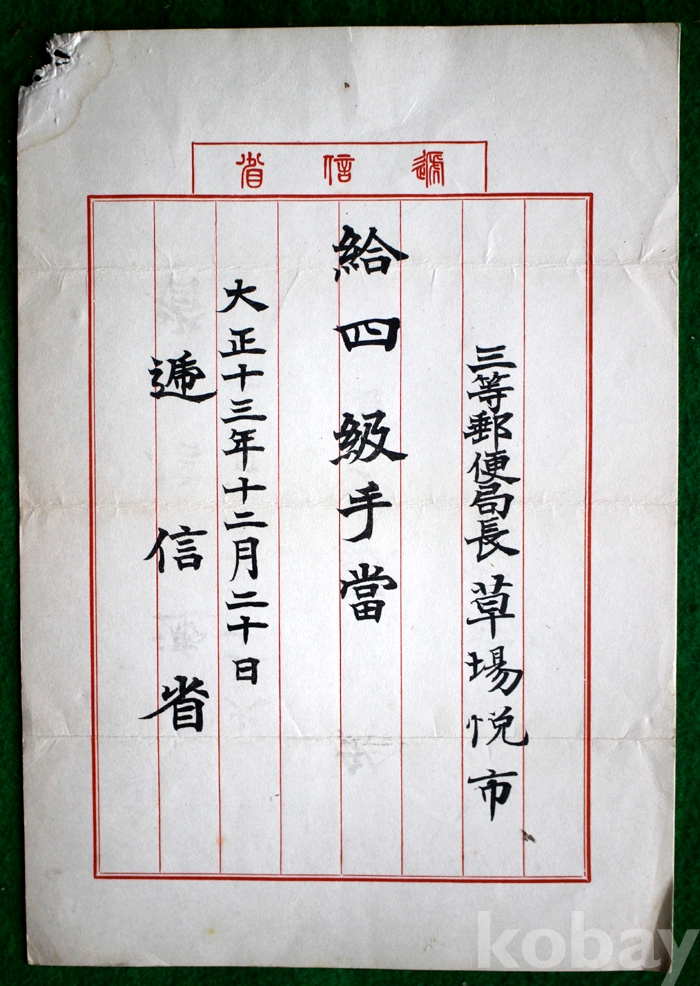 遞信省
三等郵便局長草場悦市
給四級手當
大正十三年十二月二十日
遞信省
kobay